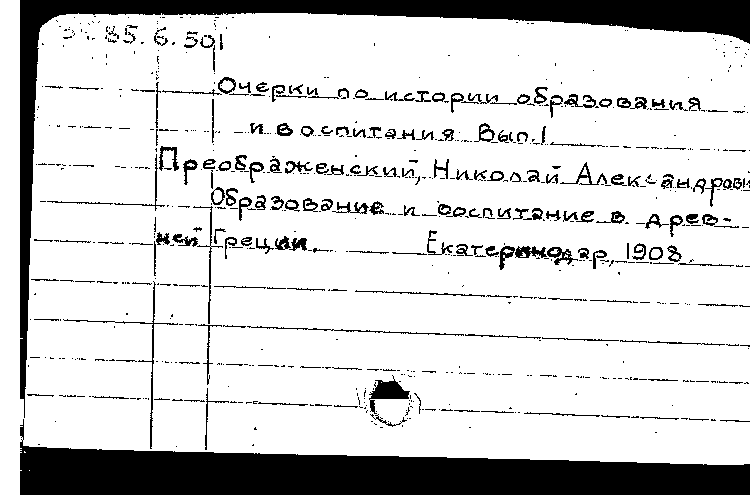 85.6.501
Очерки по истории образования
и воспитания Вып.1.
Преображенский, Николай Александрови
Образование и воспитание в древ-
ней Греции. Екатеринодар, 1908.